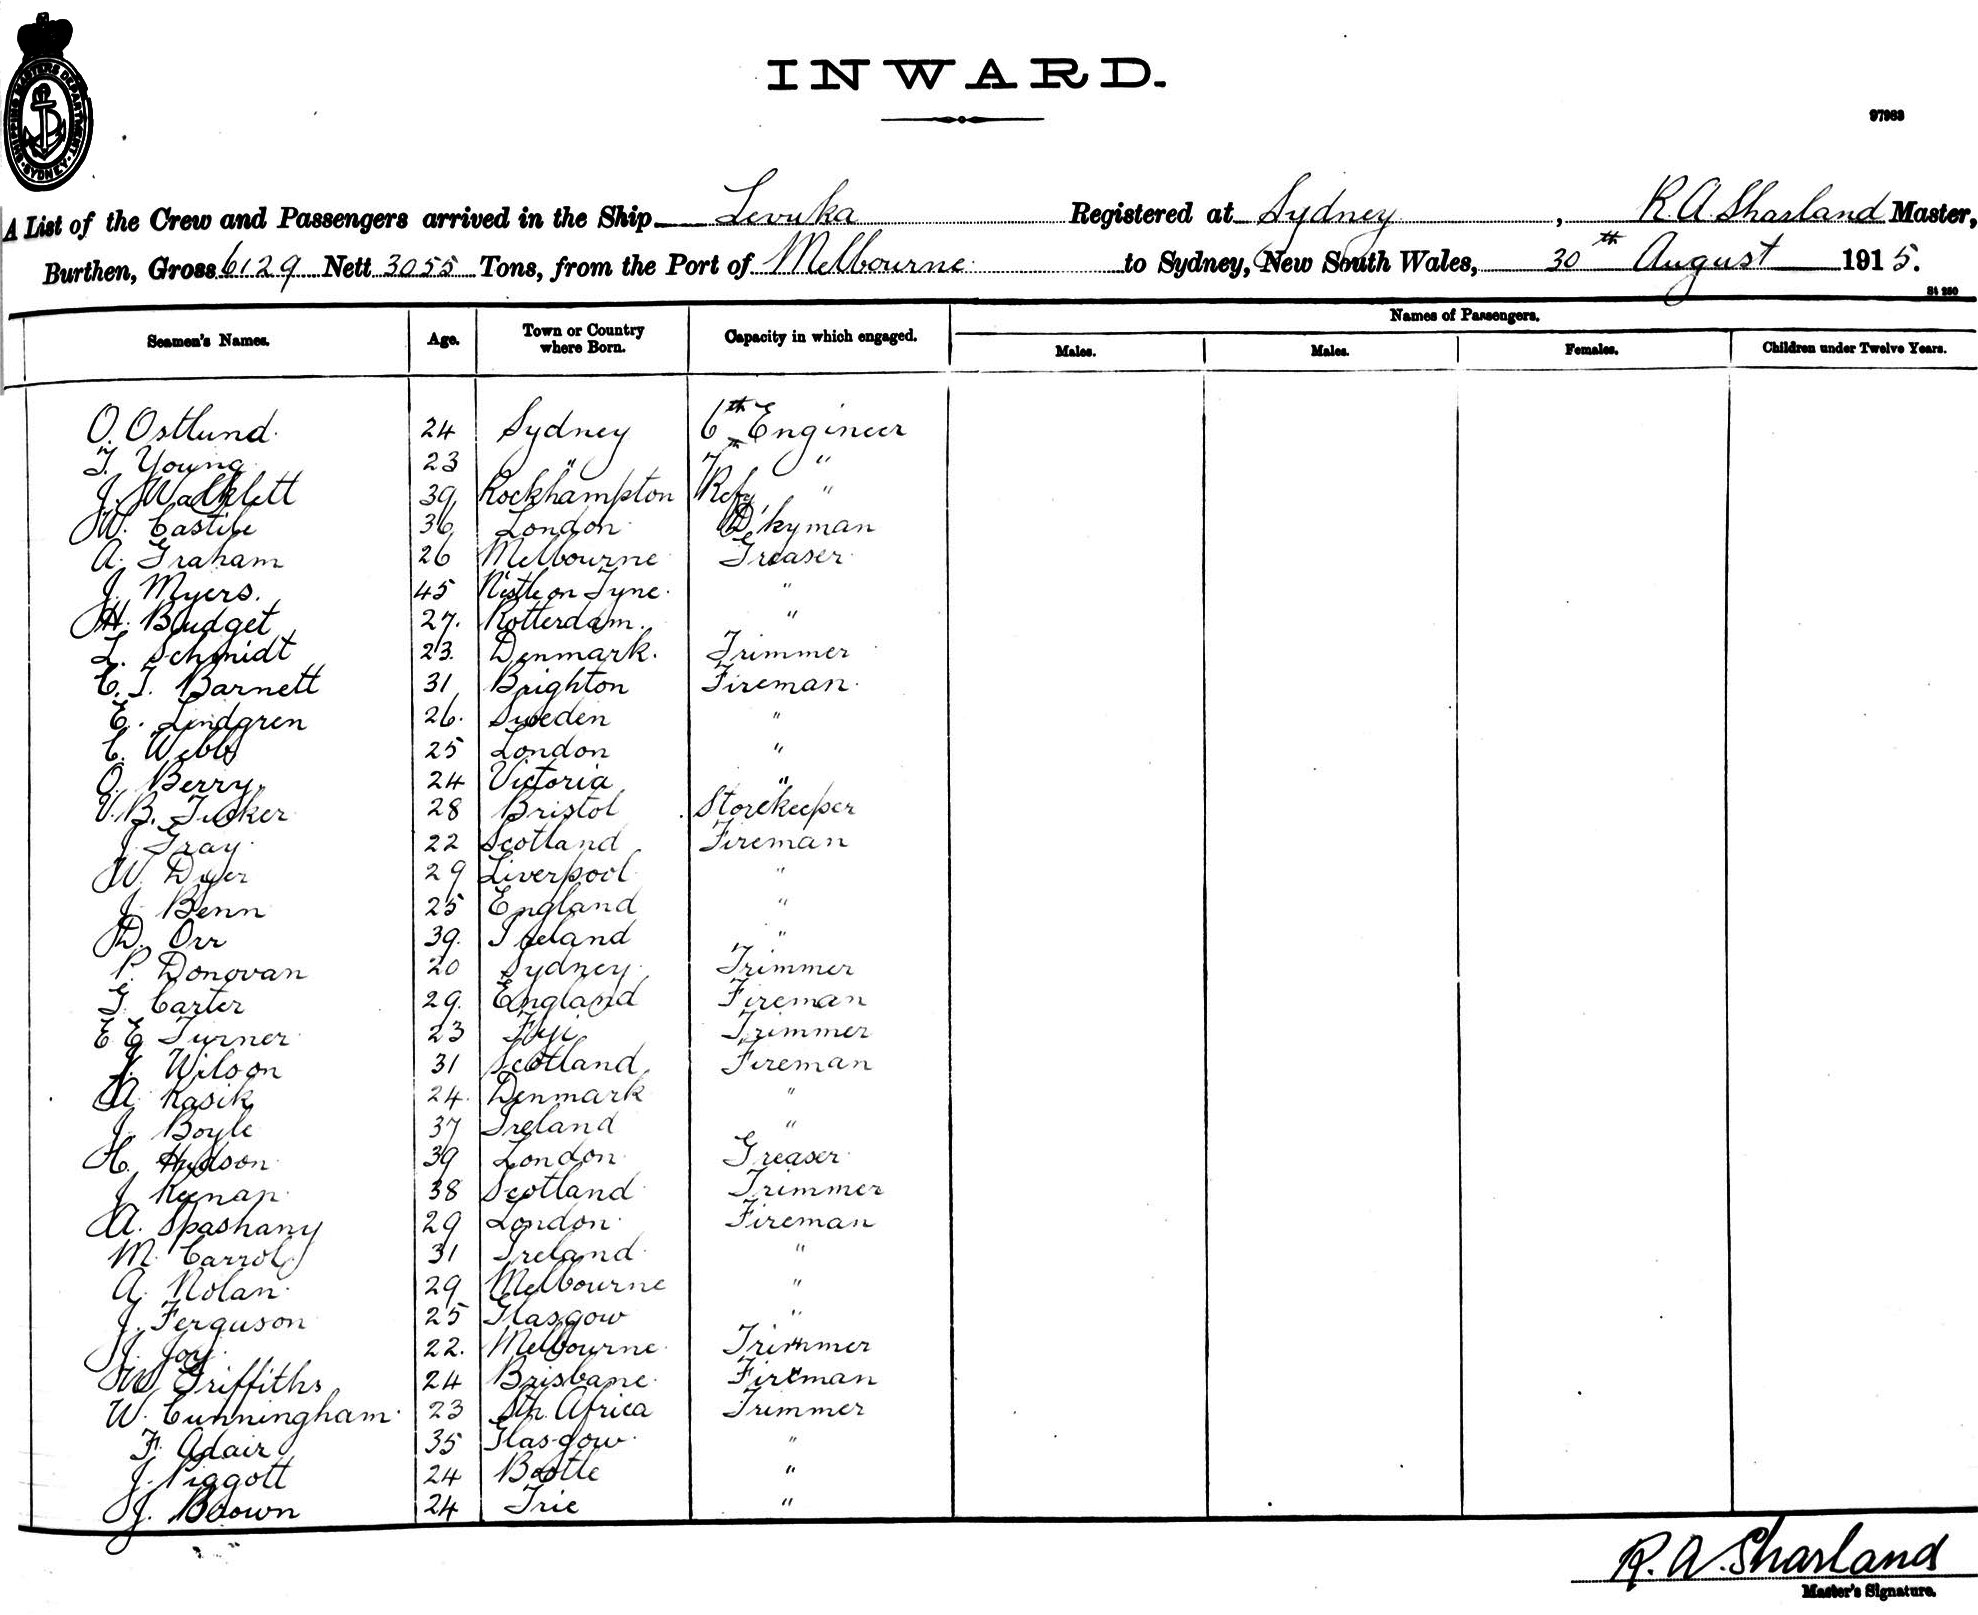 SHIPPING MASTERS DEPARTMENT · SYDNEY ·
INWARD.
97963
A List of the Crew and Passengers arrived in the Ship Levuka Registered at Sydney, R. A. Sharland Master,
Burthen, Gross 6129 Nett 3055 Tons, from the Port of Melbourne to Sydney, New South Wales, 30th August 1915.
St 250
Seamen's Names. Age. Town or Country where Born. Capacity in which engaged. Names of Passengers.
Males. Males. Females. Children under Twelve Years.
O. Ostlund 24 Sydney 6th Engineer
T. Young 23 " 7th "
J. Walklett 39 Rockhampton Refg "
W. Castile 36 London D'kyman
A. Graham 26 Melbourne Greaser
J. Myers. 45 N'stle on Tyne. "
H. Budget 27. Rotterdam. "
L. Schmidt 23. Denmark. Trimmer
C. T. Barnett 31 Brighton Fireman.
E. Lindgren 26. Sweden "
C. Webb 25 London "
O. Berry. 24 Victoria "
V. B. Tucker 28 Bristol Storekeeper
J. Gray. 22 Scotland Fireman
W. Dyer 29 Liverpool "
J. Benn 25 England "
D. Orr 39. Ireland "
P. Donovan 20 Sydney. Trimmer
G. Carter 29. England Fireman
E E Turner 23 Fiji Trimmer
J. Wilson 31 Scotland Fireman
A. Kasik 24. Denmark "
J. Boyle 37 Ireland "
H. Hudson 39 London Greaser
J Keenan 38 Scotland Trimmer
A. Spashany 29 London Fireman
M. Carrol 31 Ireland "
A. Nolan 29 Melbourne "
J. Ferguson 25 Glasgow "
J. Joy 22. Melbourne Trimmer
W Griffiths 24 Brisbane Fireman
W. Cunningham 23 Sth Africa Trimmer
F. Adair 35 Glasgow "
J. Piggott 24 Bootle "
J. Brown 24 "
R. A. Sharland
Master's Signature.